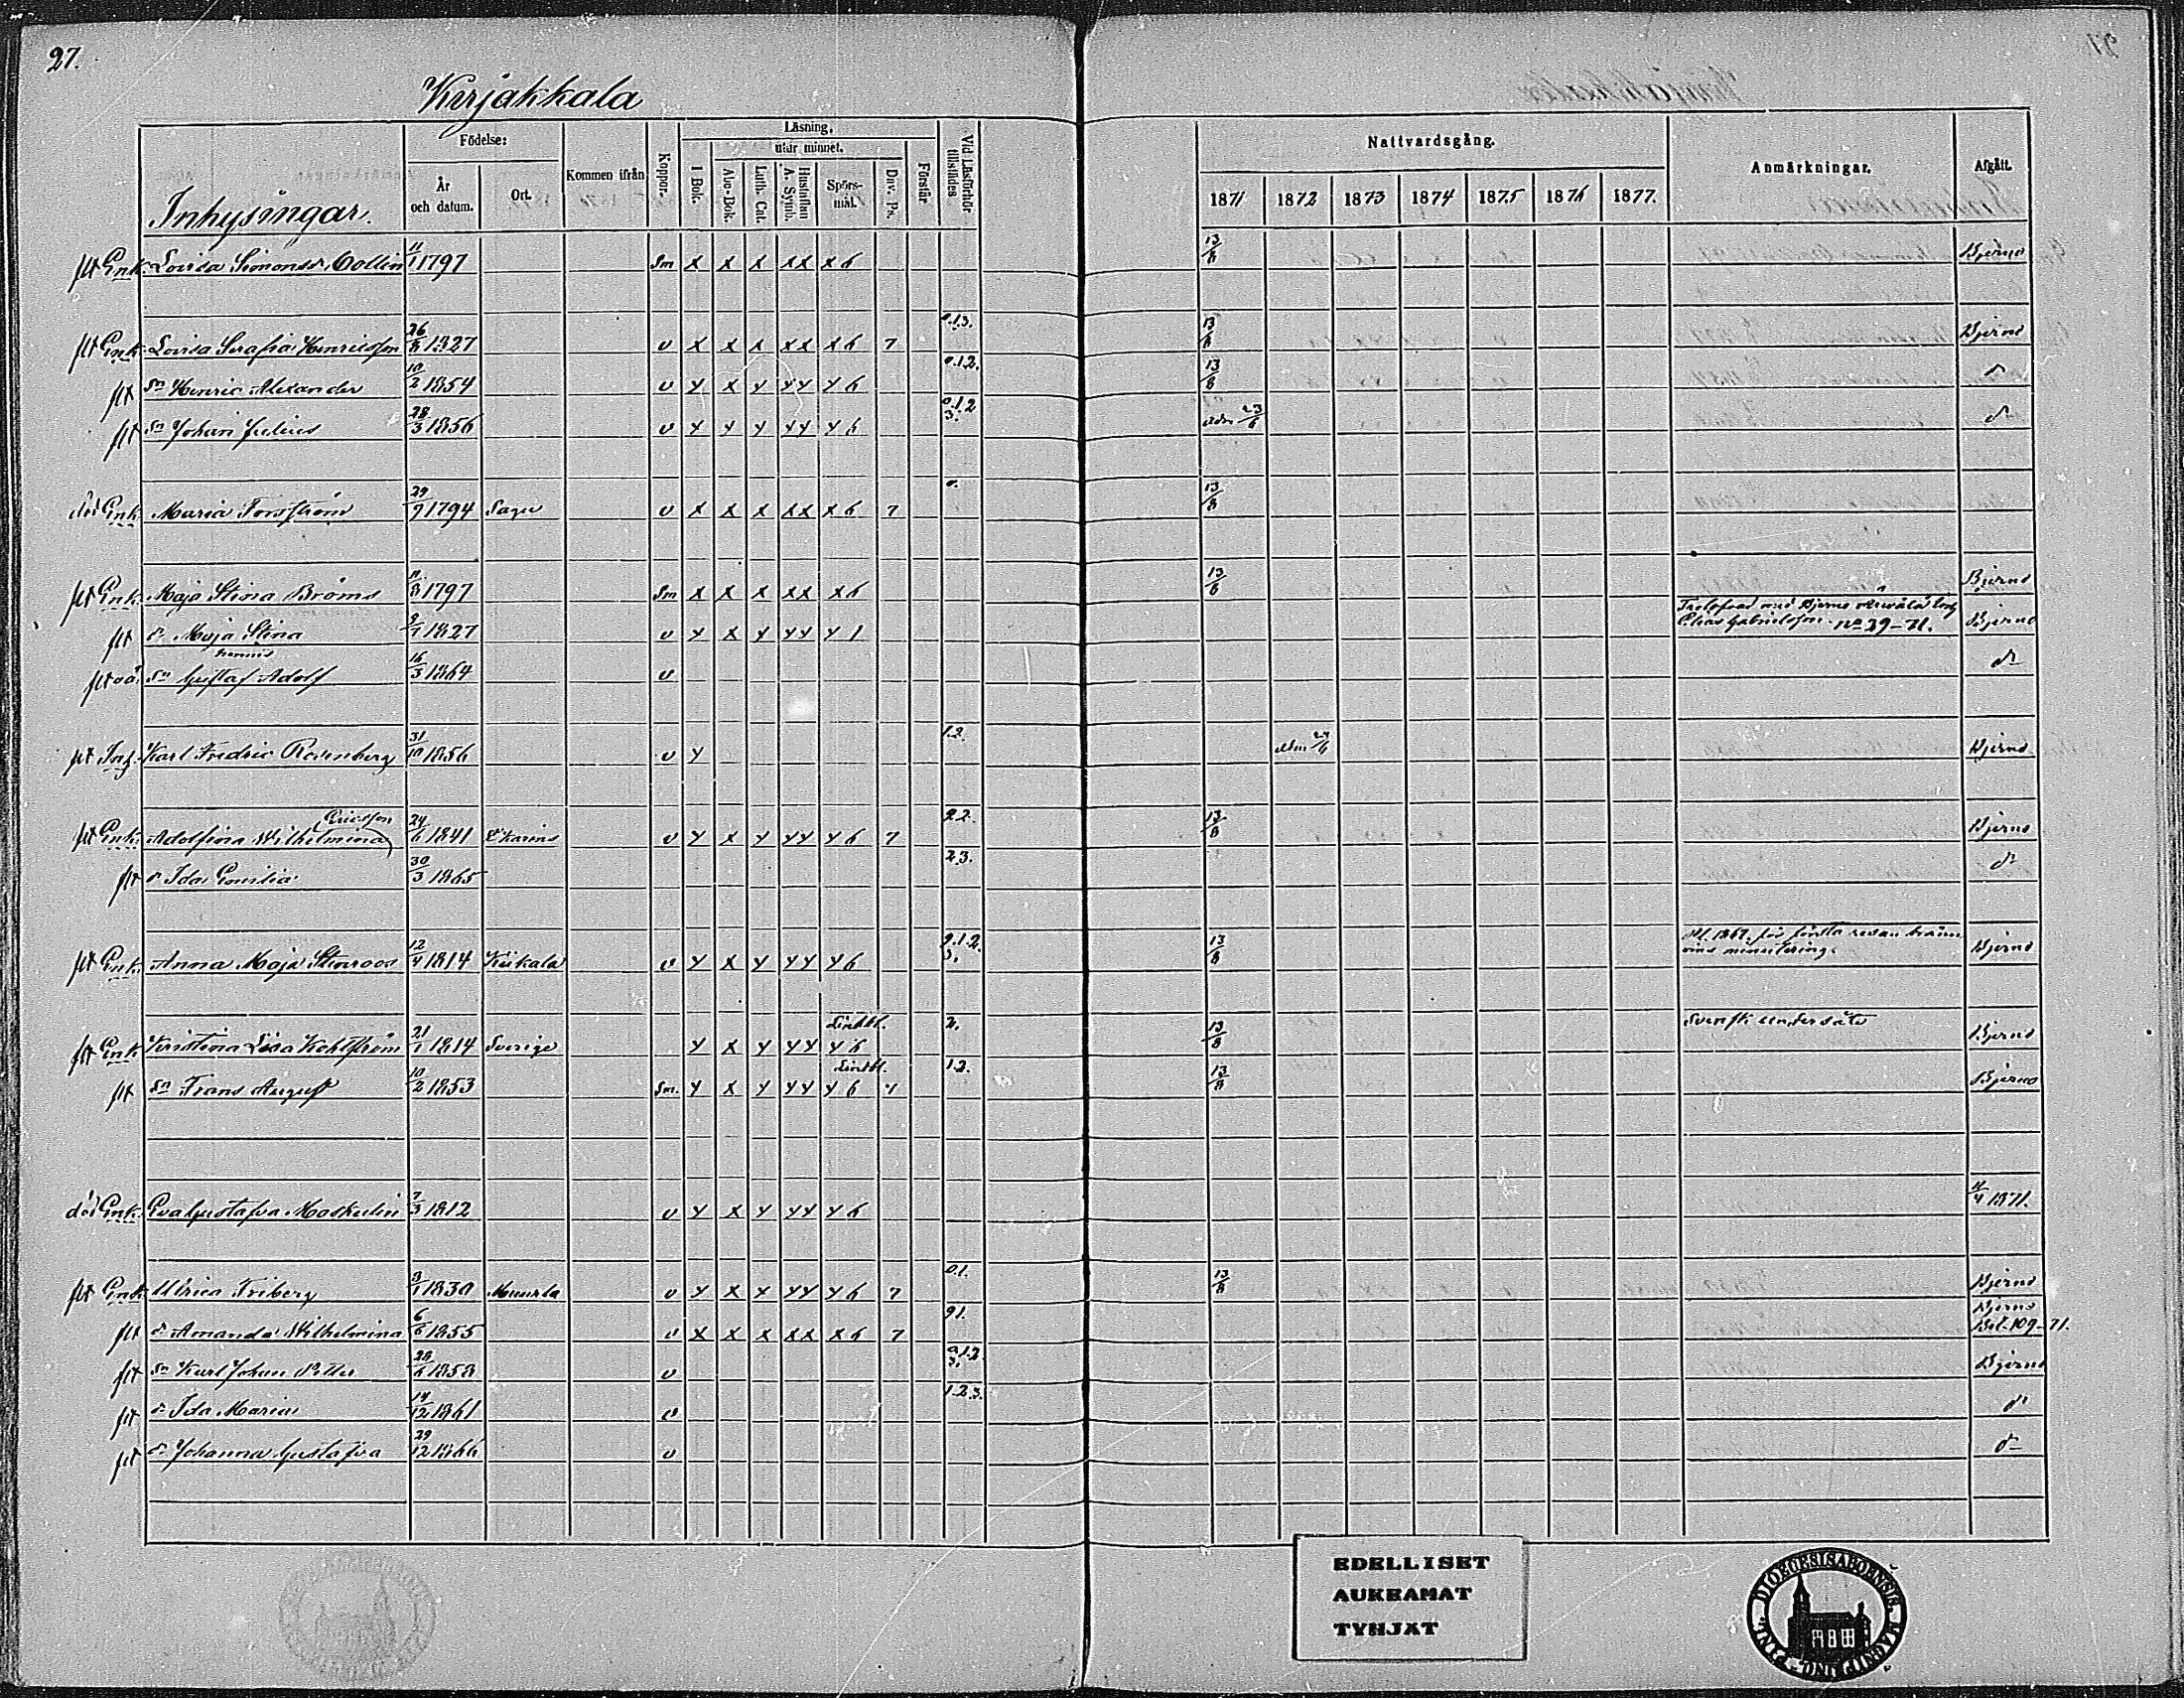 27.
Kirjakkala
Inhysingar.
Födelse:
År och datum.
Ort.
Kommen ifrån
Koppor.
Läsning.
utur minnet.
I Bok.
Abc-Bok.
Luth. Cat.
Hustaflan A. Symb.
Spörs-mål.
Dav. Ps.
Förstår
Vid Läsförhör tillstädes
Nattvardsgång.
1871 1872 1873 1874 1875 1876 1877.
Anmärkningar.
Afgått.
flt Enk. Lovisa Simonsdr Collin 11/1 1797 Sm x x x x x x 6 13/8 Bjerno
flt Enk. Lovisa Serafia Henricsson 26/8 1827 v x x x x x x 6 7 0.1.3. 13/8 Bjerno
flt Sn Henric Alexander 10/2 1854 v y x y y y y 6 0.1.2. 13/8
flt Sn Johan Julius 28/3 1856 v y y y y y y 6 0.1.2 3. adm 23/6 do
död Enk. Maria Forsström 29/9 1794 Sagu v x x x x x x 6 7 0. 13/8
flt Enk. Maja Stina Broms 11/8 1797 Sm x x x x x x 6 13/8 Bjerno
flt dr Maja Stina 9/1 1827 v y x y y y y 1 Trolofvad med Bjerno Elias Gabrielsson. no 29-71. Bjerno
hennes
flt oä. Sn Gustaf Adolf 16/3 1864 v do
flt Inh. Karl Fredric Rosenberg 31/10 1856 v y 1.2. adm 24/6 Bjerno
flt Enk. Adolfina Wilhelmina Ericsson 24/6 1841 v y x y y y y 6 7 2.2. 13/8 Bjerno
flt dr Ida Emilia 30/3 1865 2.3. do
flt Enk. Anna Maja Stenroos 12/4 1814 Kiikala v y x y y y y 6 0.1.2. 3. 13/8 1867 för första resan vins minutering. Bjerno
flt Enk Kristina Lisa Kohlström 21/1 1814 Sverige y x y y y y 6 2. 13/8 Svensk undersåte Bjerno
flt Sn Frans August 10/2 1853 Sm. y x y y y y 6 1.2. 13/8 Bjerno
död Enk. Eva Gustafva Maskulin 7/3 1812 v y x y y y y 6 11/4 1871.
flt Enk. Ulrica Friberg 3/1 1830 Muurla v y x x y y y 6 7 0.1. 13/8 Bjerno
flt dr Amanda Wilhelmina 6/6 1855 v x x x x x x 6 7 01. Bjerno Bet. 109-71.
flt Sn Karl Johan Petter 28/6 1858 v 0.1.2. 3. Bjerno
flt dr Ida Maria 14/12 1861 v 1.2.3. do
flt dr Johanna Gustafva 29/12 1866 v do
EDELLISET
AUKEAMAT
TYHJÄT